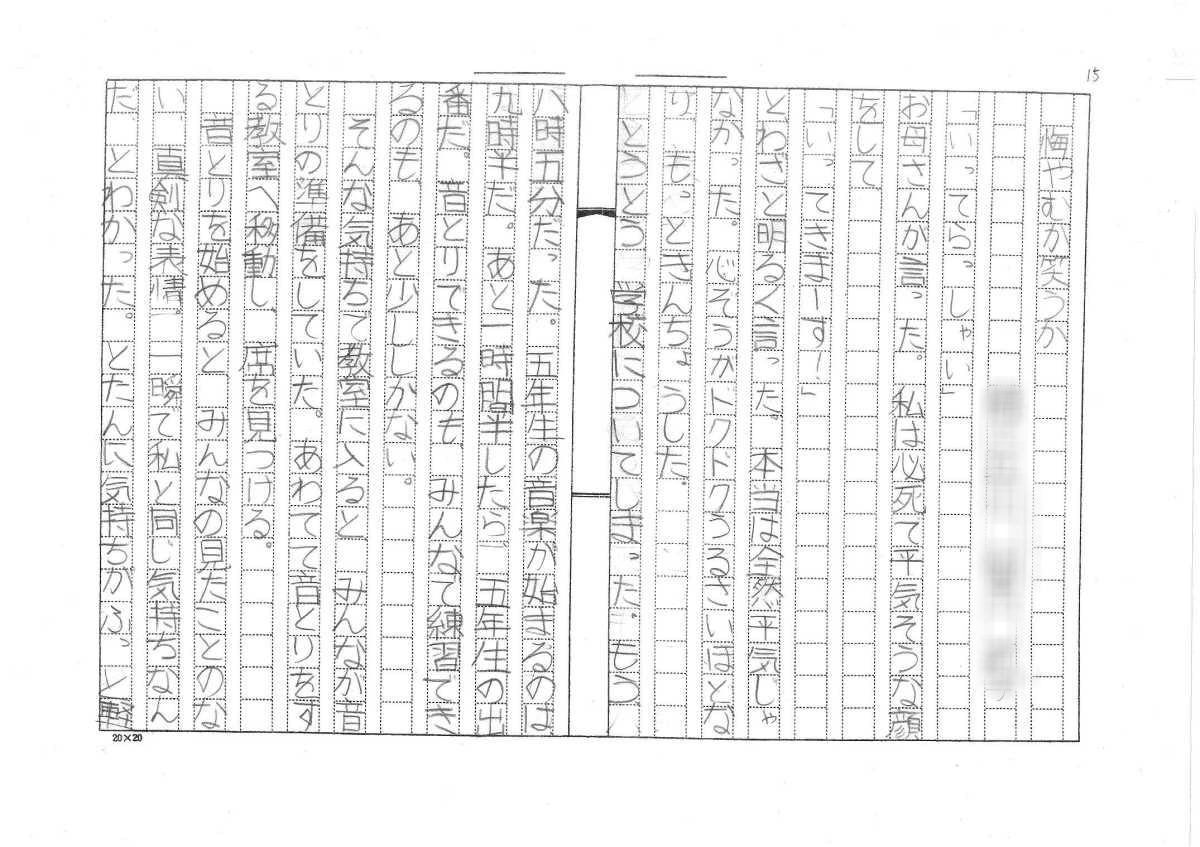 15
悔やむか笑うか
「いってらっしゃい」
お母さんが言った。私は必死で平気そうな顔
をして
「いってきまーす！」
と、わざと明るく言った。本当は全然平気じゃ
なかった。心ぞうがドクドクうるさいほどな
り、もっときんちょうした。
とうとう、学校についてしまった。もう
八時五分だった。五年生の音楽が始まるのは
九時半だ。あと一時間半したら、五年生の出
番だ。音とりできるのも、みんなで練習でき
るのも、あと少ししかない。
そんな気持ちで教室に入ると、みんなが音
とりの準備をしていた。あわてて音とりをす
る教室へ移動し、席を見つける。
音とりを始めると、みんなの見たことのな
い、真剣な表情。一瞬で私と同じ気持ちなん
だ、とわかった。とたんに気持ちがふっと軽
20×20